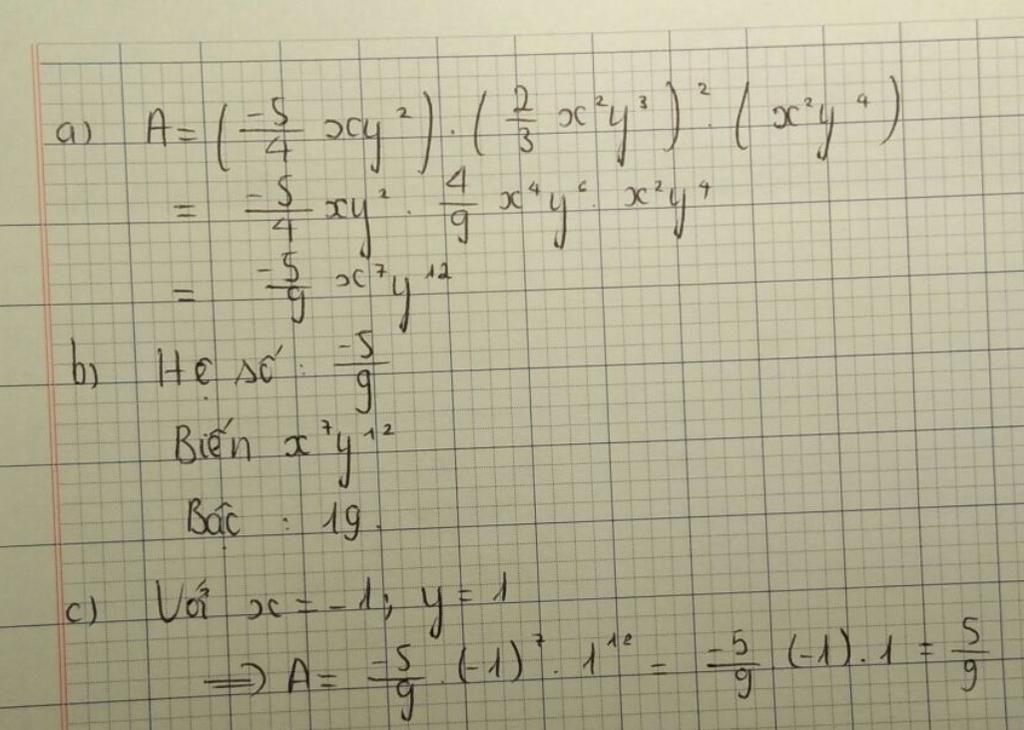 a) A = (-5/4 xy²) . (2/3 x²y³)² . (x²y⁴)
= -5/4 xy² . 4/9 x⁴y⁶ . x²y⁴
= -5/9 x⁷y¹²
b) Hệ số : -5/9
Biến x⁷y¹²
Bậc : 19
c) Với x = -1; y = 1
⟹ A = -5/9 . (-1)⁷ . 1¹² = -5/9 (-1) . 1 = 5/9